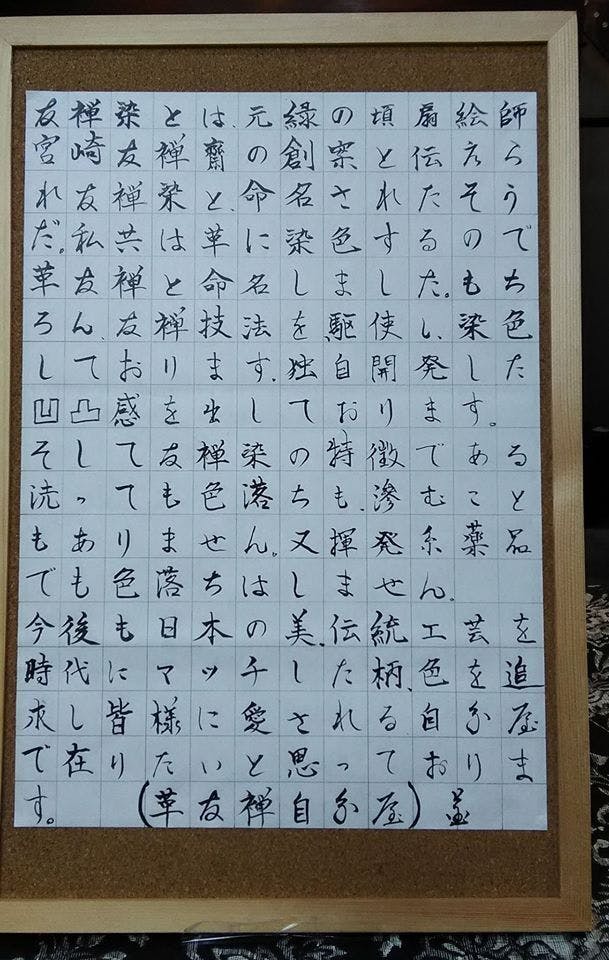 友禅染とは、元緑の頃扇絵師
宮崎友禅齋の創案と伝えら
れ友禅染と、命名されたそう
だ。私共は革に染色するので
革友禅と命名しました。もち
ろん、友禅技法を駆使し、染色
しております。独自開発した
凹凸感を出しております。
そして友禅染の特徴である
洗っても色落ちも、滲むこと
もありません。又揮発系薬品
でも色落ちはしません。
今後も日本の美、伝統工芸を
時代にマッチした柄、色を追
求し皆様に愛される自分屋
で在りたいと思っておりま
す。(革友禅自分屋)